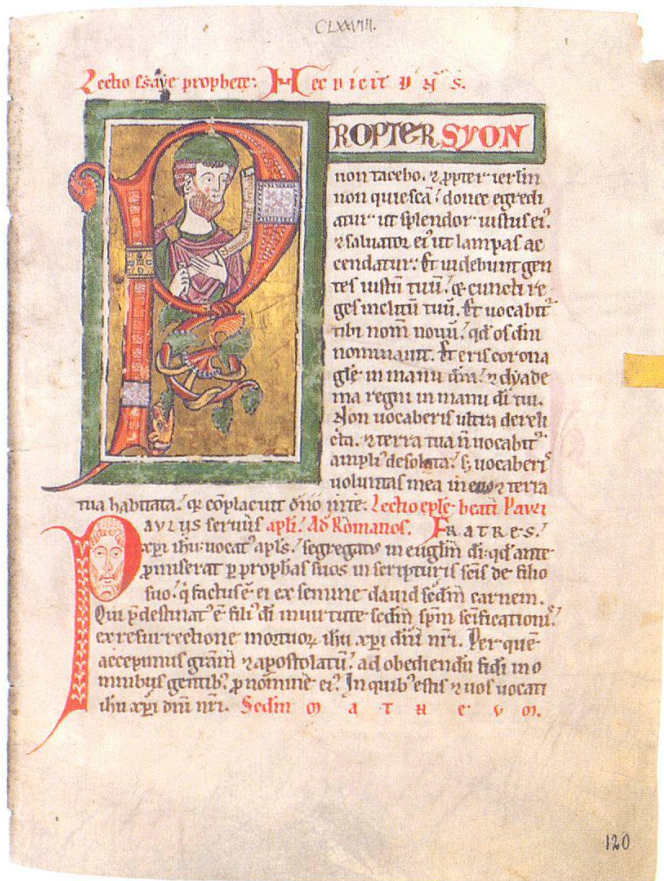 CLXXVIII.
Lectio Isaye prophete. Hec dicit dns.
PROPTER SYON
non tacebo. ⁊ ꝓpter ierlm
non quiescā. donec egredi
atur ut splendor iustus ei.
⁊ saluator ei ut lampas ac
cendatur. Et uidebunt gen
tes iustū tuū. ⁊ cuncti re
ges inclitū tuū. Et uocabit
tibi nom̄ nouū. qd os dni
nominauit. Et eris corona
gle in manu dni. ⁊ dyade
ma regni in manu di tui.
Non uocaberis ultra dereli
cta. ⁊ terra tua n̄ uocabit
ampli desolata. s; uocaberis
uoluntas mea in ea ⁊ terra
tua habitata. qꝫ cōplacuit dno in te. Lectio eple beati Pauli
PAVLVS seruus apli. Ad Romanos. FRATRES.
xpi ihu uocat apls. segregatus in euglm di. qd ante
ꝓmiserat ꝑ ꝓphas suos in scripturis scis de filio
suo. q̇ factus ē ei ex semine dauid scdm carnem.
Qui p̄destinat ē fili di in uirtute scdm spm scificationis.
ex resurrectione mortuoꝝ ihu xpi dni nri. Per quē
accepimus grām ⁊ apostolatū. ad obediendū fidi in o
mnibus gentib; ꝓ nomine ei. In quib; estis ⁊ uos uocati
ihu xpi dni nri. Scdm MATHEVM.
120